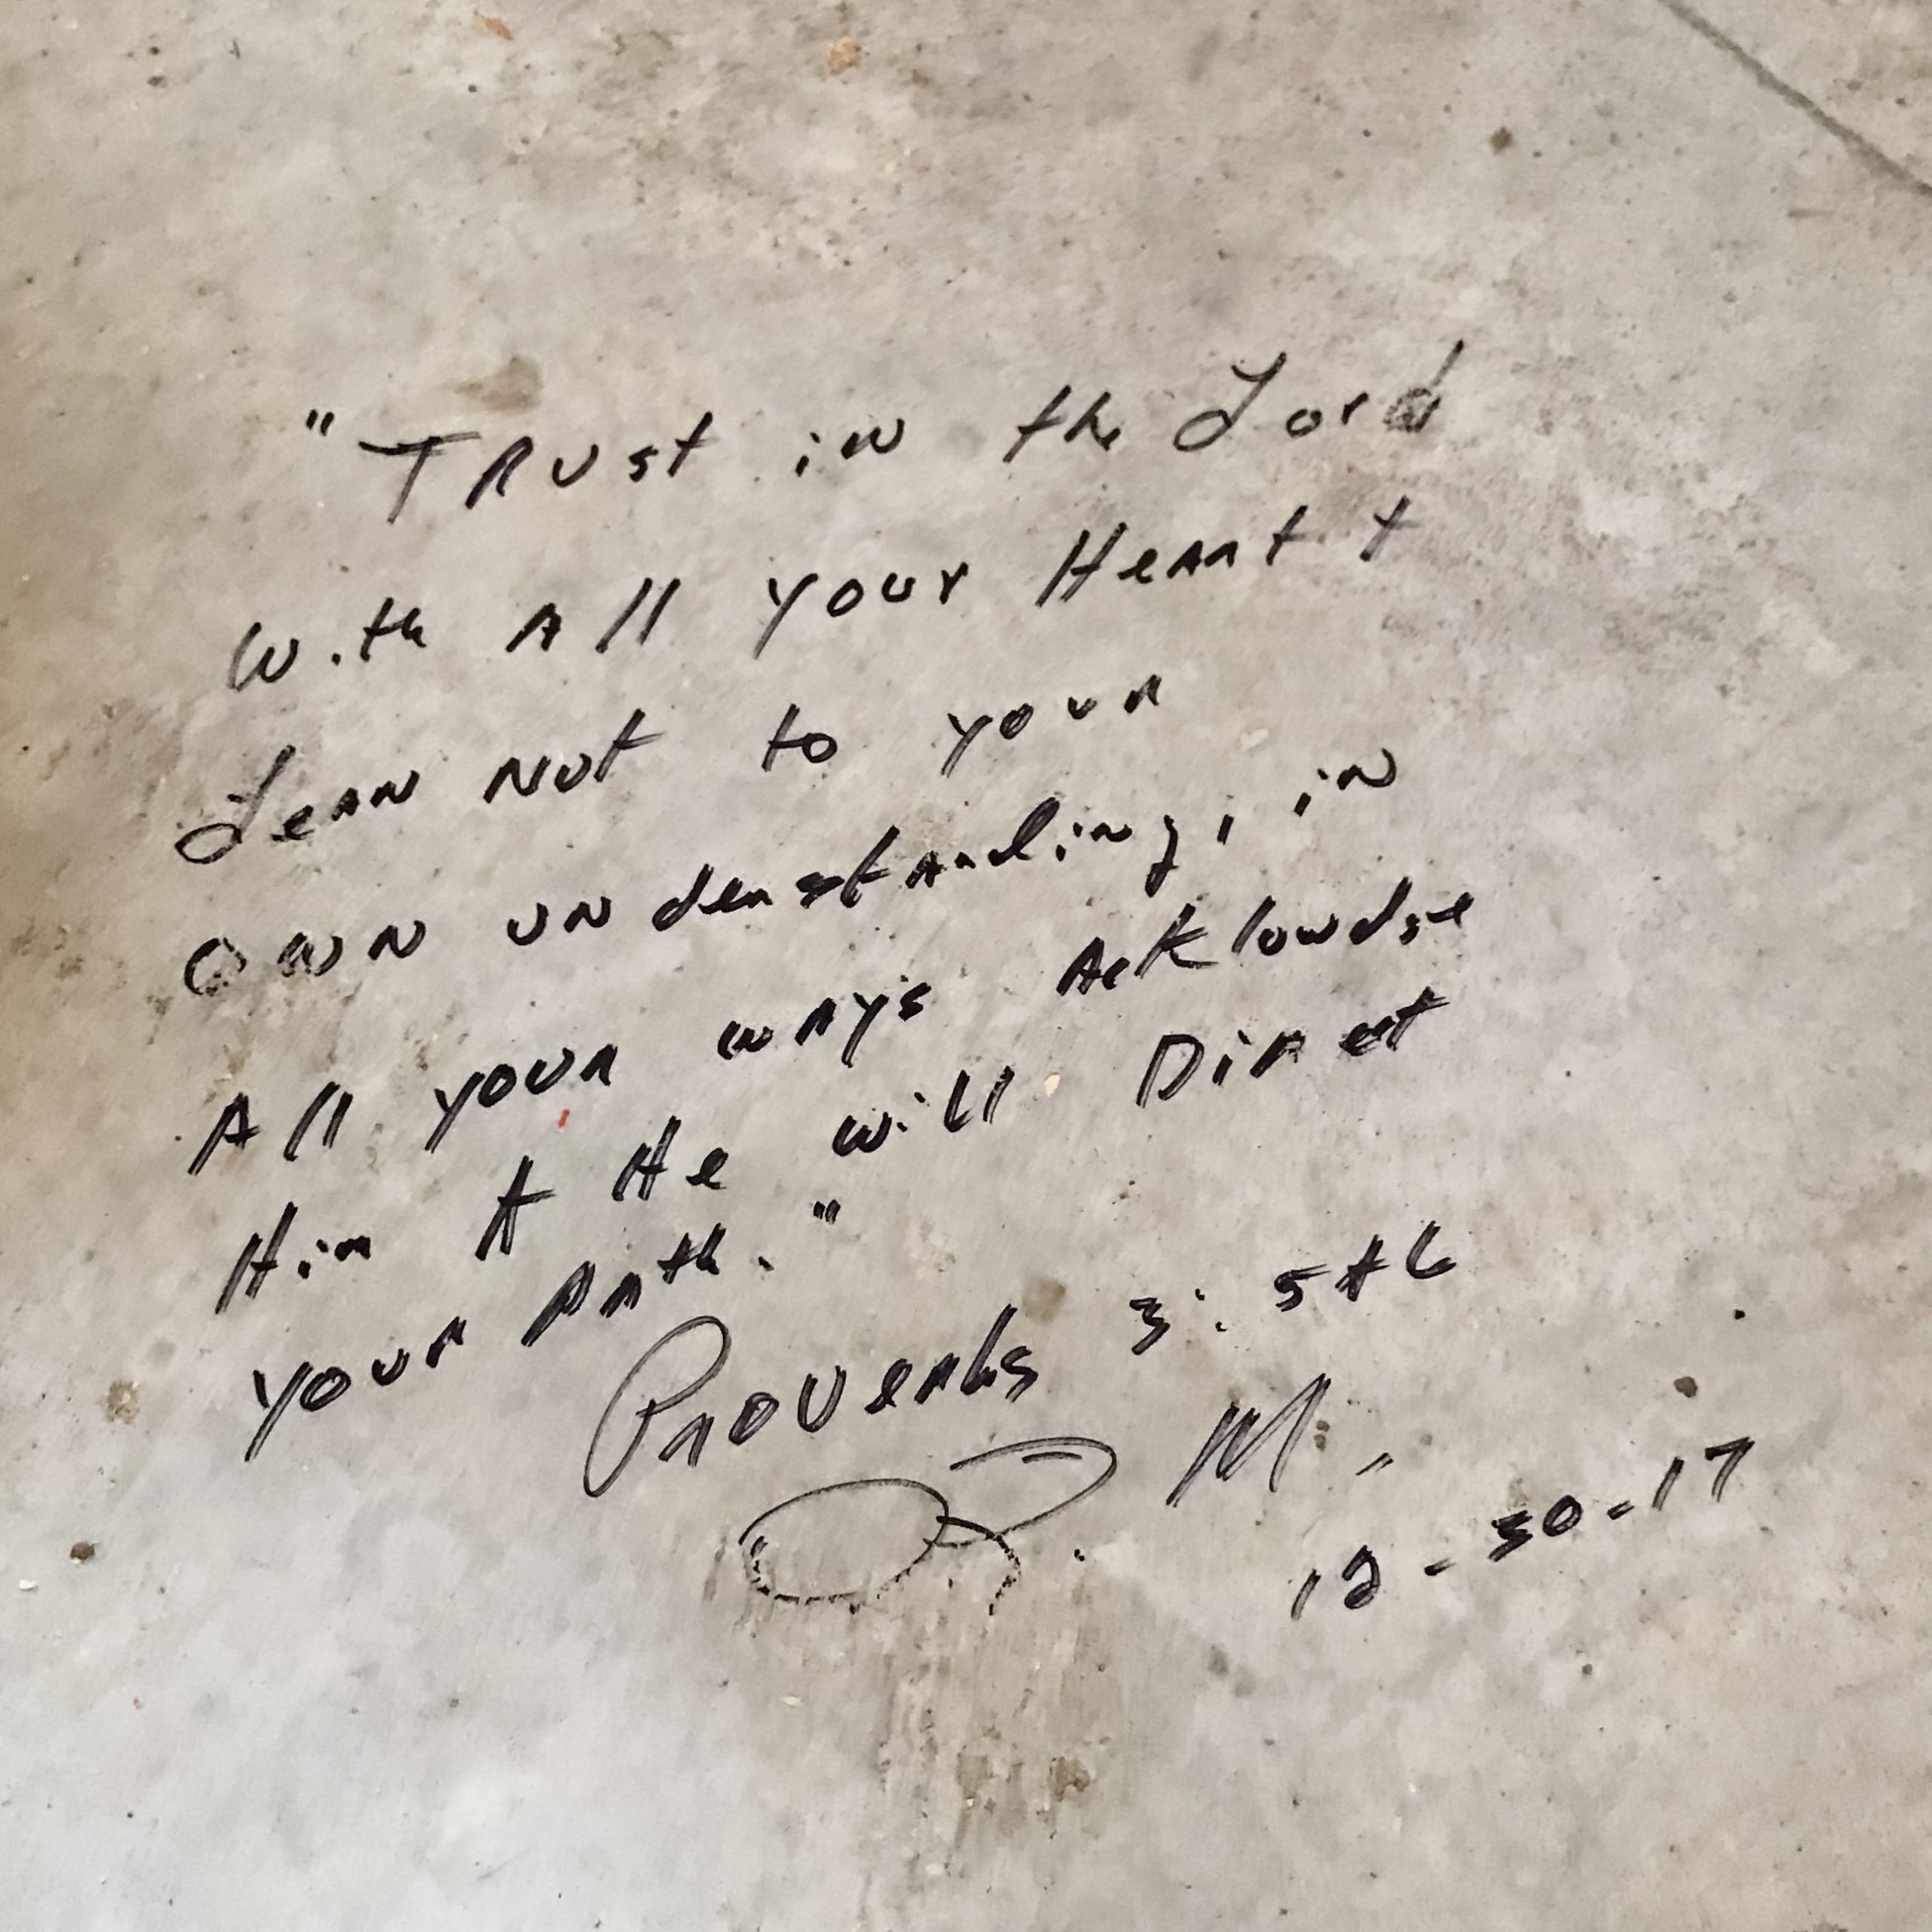 "Trust in the Lord
with All your Heart +
Lean Not to your
Own understanding, in
All your ways Acklowdge
Him + He will Direct
your Path."
Proverbs 3:5+6
M.
12-30-17